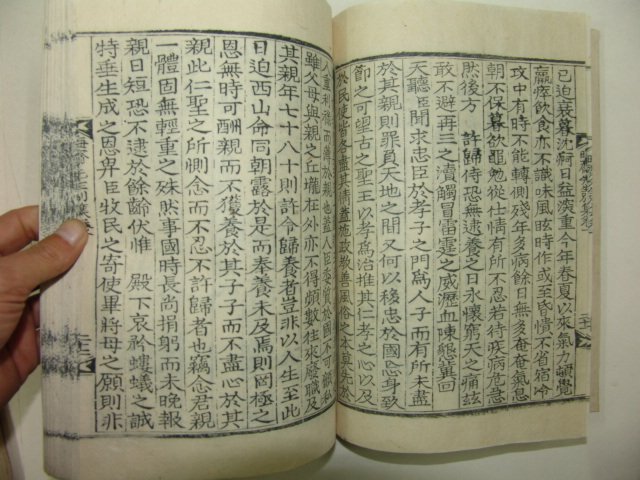 已迫衰暮沈痾日益深重今年春夏以來氣力頓覺
羸瘁飮食亦不識味風眩時作或至昏憒不省宿冷
攻中有時不能轉側殘年多病餘日無多奄奄氣息
朝不保暮欲黽勉從仕情有所不忍若待疾病危急
然後方 許歸侍恐無逮養之日永懷窮天之痛玆
敢不避再三之瀆觸冒雷霆之威瀝血陳懇冀回
天聽臣聞求忠臣於孝子之門爲人子而有所未盡
於其親則罪負天地之間又何以移忠於國忘身致
節之可望古之聖王以孝爲治推其仁孝之心以及
於民使皆各盡其情蓋施政敎善風俗之本莫先於
雖父母與親之丘壠在外亦不得頻數往來廢職及
其親年七十八十則許令歸養者豈非以人生至此
日迫西山命同朝露於是而奉養未及焉則罔極之
恩無時可酬親而不獲養於其子子而不盡心於其
親此仁聖之所惻念而不忍不許歸者也竊念君親
一體固無輕重之殊然事國時長尚捐躬而未晩報
親日短恐不逮於餘齡伏惟 殿下哀矜螻蟻之誠
特垂生成之恩畀臣牧民之寄使畢將母之願則非